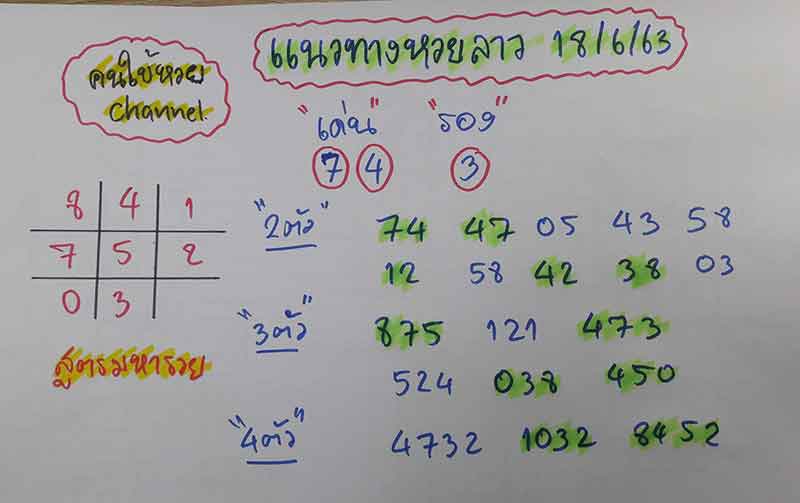 คนใบ้หวย
Channel.
แนวทางหวยลาว 18/6/63
"เด่น" "รอง"
7 4 3
8 4 1
7 5 2
0 3
สูตรมหารวย
"2ตัว" 74 47 05 43 58
12 58 42 38 03
"3ตัว" 875 121 473
524 038 450
"4ตัว" 4732 1032 8452